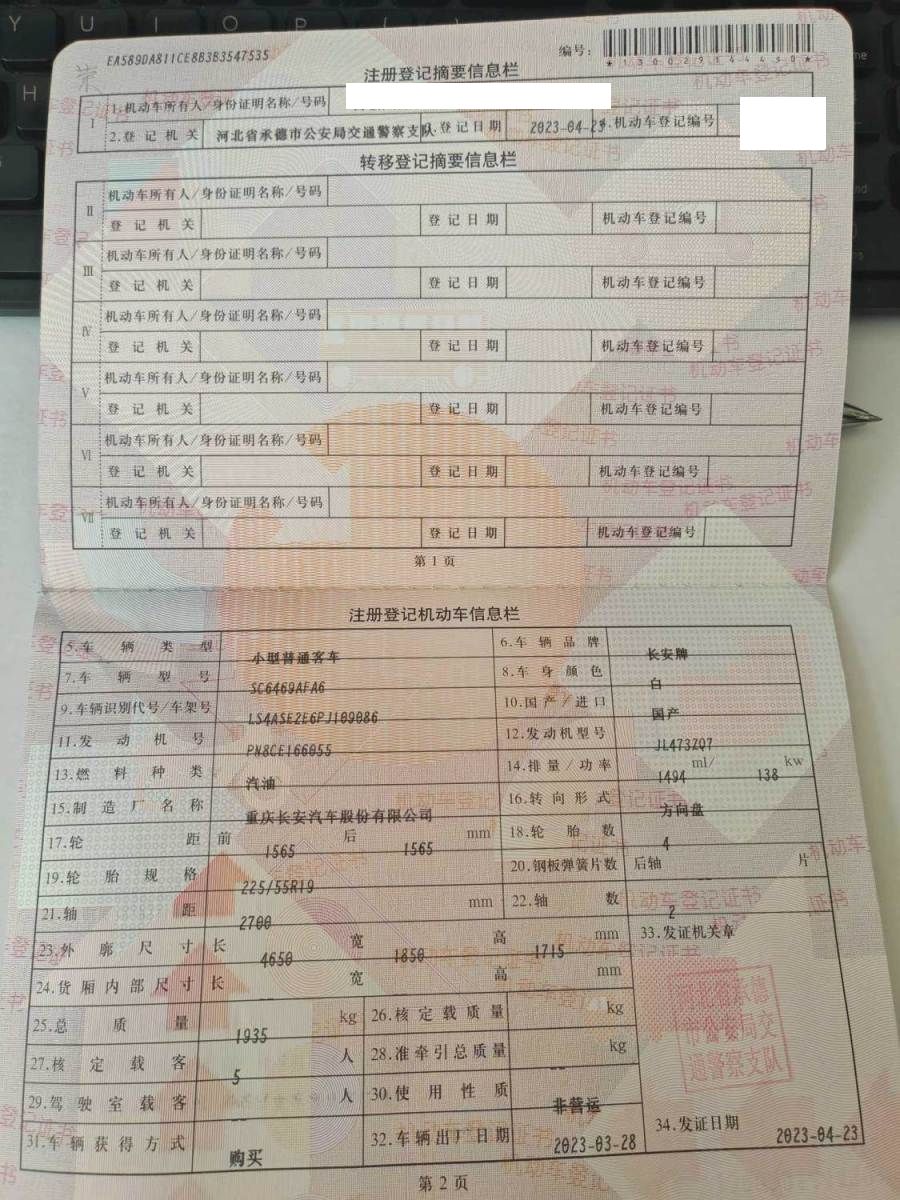 EA589DA811CE8B3B3547535
编号：
*130029144450*
注册登记摘要信息栏
I 1.机动车所有人/身份证明名称/号码
2.登记机关 河北省承德市公安局交通警察支队 3.登记日期 2023-04-23 4.机动车登记编号
转移登记摘要信息栏
II 机动车所有人/身份证明名称/号码
登记机关 登记日期 机动车登记编号
III 机动车所有人/身份证明名称/号码
登记机关 登记日期 机动车登记编号
IV 机动车所有人/身份证明名称/号码
登记机关 登记日期 机动车登记编号
V 机动车所有人/身份证明名称/号码
登记机关 登记日期 机动车登记编号
VI 机动车所有人/身份证明名称/号码
登记机关 登记日期 机动车登记编号
VII 机动车所有人/身份证明名称/号码
登记机关 登记日期 机动车登记编号
第1页
注册登记机动车信息栏
5.车辆类型 小型普通客车 6.车辆品牌 长安牌
7.车辆型号 SC6469AFA6 8.车身颜色 白
9.车辆识别代号/车架号 LS4ASE2E6PJ109086 10.国产/进口 国产
11.发动机号 PN8CE166055 12.发动机型号 JL473ZQ7
13.燃料种类 汽油 14.排量/功率 1494 ml/ 138 kw
15.制造厂名称 重庆长安汽车股份有限公司 16.转向形式 方向盘
17.轮距 前 1565 后 1565 mm 18.轮胎数 4
19.轮胎规格 225/55R19 20.钢板弹簧片数 后轴 -- 片
21.轴距 2700 mm 22.轴数 2
23.外廓尺寸 长 4650 宽 1850 高 1715 mm 33.发证机关章
24.货厢内部尺寸 长 -- 宽 高 mm
25.总质量 1935 kg 26.核定载质量 -- kg
27.核定载客 5 人 28.准牵引总质量 -- kg
29.驾驶室载客 -- 人 30.使用性质 非营运
31.车辆获得方式 购买 32.车辆出厂日期 2023-03-28 34.发证日期 2023-04-23
河北省承德
市公安局交
通警察支队
第2页